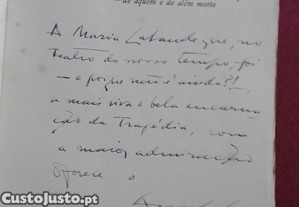 — de aquém e de além morte
A Maria Lalande que, no
teatro do nosso tempo, foi
— e porque não é ainda?! —
a mais viva e bela encarna-
ção da Tragédia, com
a maior admiração
oferece o
CustoJusto.pt